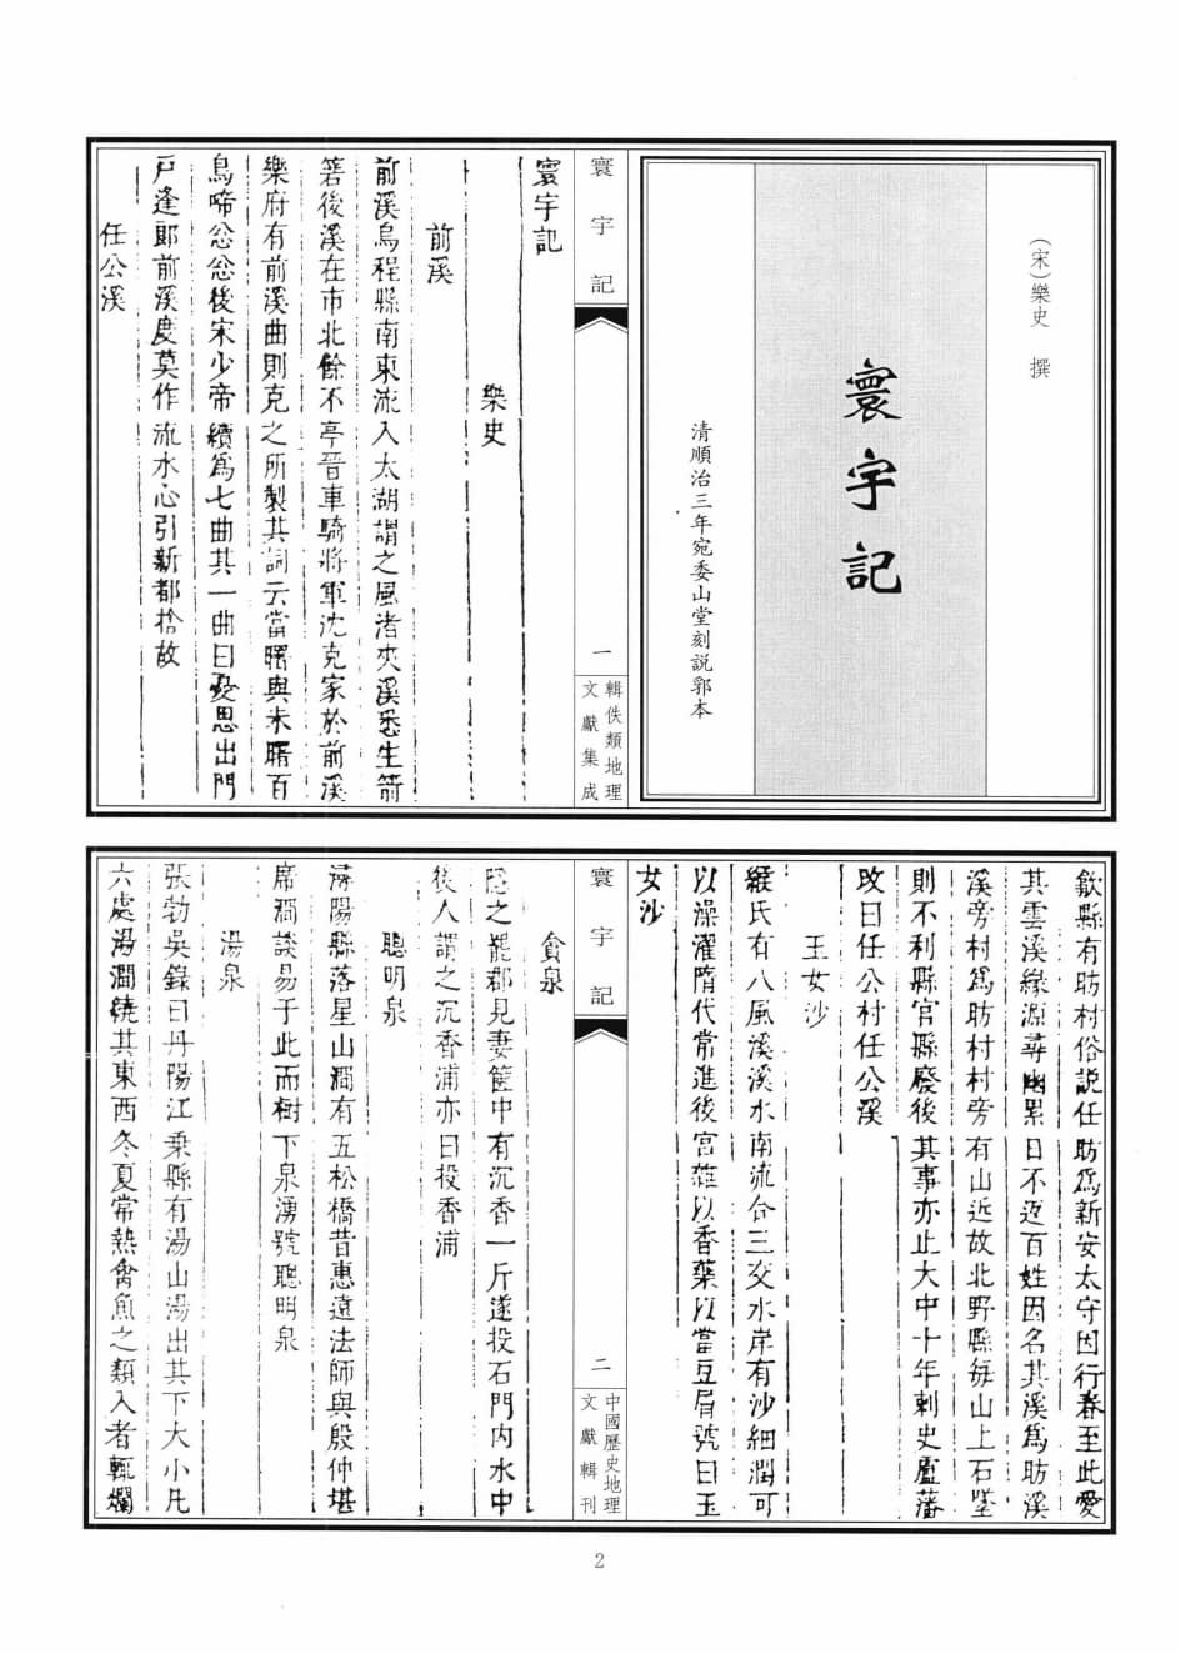 （宋）樂史　撰
寰宇記
清順治三年宛委山堂刻説郛本
寰宇記
一
輯佚類地理
文獻集成
寰宇記
樂史
前溪
前溪烏程縣南東流入太湖謂之風渚夾溪悉生箭
箬後溪在市北餘不亭晉車騎將軍沈克家於前溪
樂府有前溪曲則克之所製其詞云當曙與未曙百
鳥啼忿忿後宋少帝續爲七曲其一曲曰憂思出門
戸逢郎前溪度莫作流水心引新都捨故
任公溪
歙縣有昉村俗説任昉爲新安太守因行春至此愛
其雲溪緣源尋幽累日不返百姓因名其溪爲昉溪
溪旁村爲昉村村旁有山近故北野縣每山上石墜
則不利縣官縣廢後其事亦止大中十年刺史盧潘
改曰任公村任公溪
王女沙
緱氏有八風溪溪水南流合三交水岸有沙細潤可
以澡濯隋代常進後宮雜以香藥以當豆屑號曰玉
女沙
寰宇記
二
中國歷史地理
文獻輯刊
貪泉
隱之罷郡見妻篋中有沉香一斤遂投石門内水中
後人謂之沉香浦亦曰投香浦
聰明泉
潯陽縣落星山澗有五松橋昔惠遠法師與殷仲堪
席澗談易于此而樹下泉湧號聰明泉
湯泉
張勃吳錄曰丹陽江乘縣有湯山湯出其下大小凡
六處湯澗繞其東西冬夏常熱禽魚之類入者輒爛
2